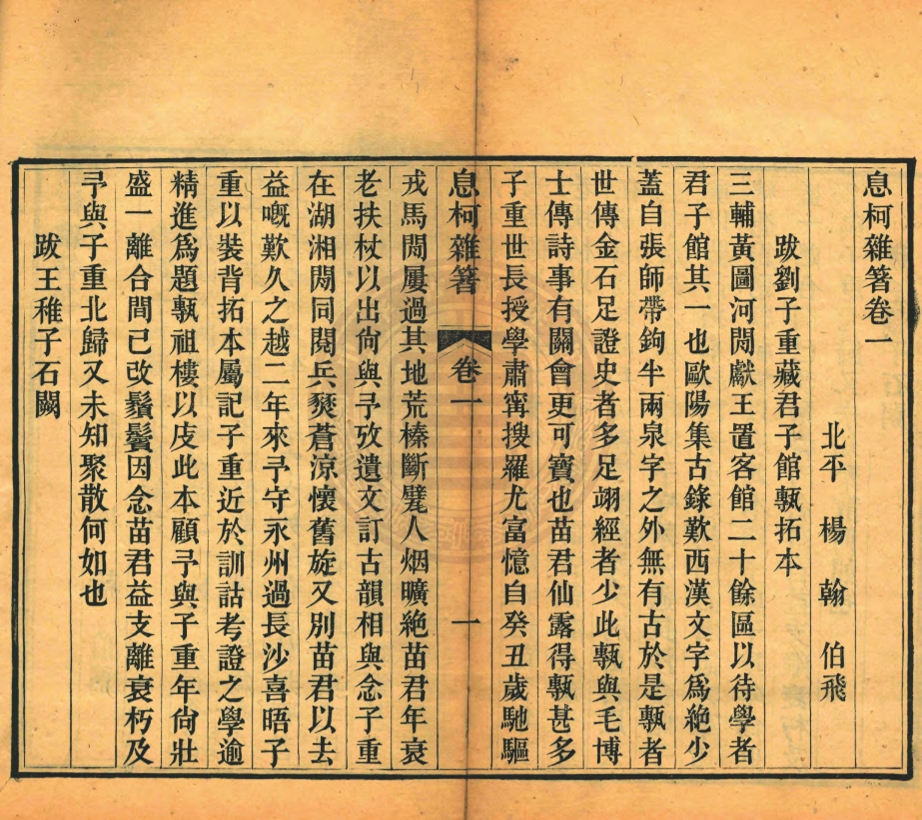 息柯雜箸卷一
北平 楊 翰 伯飛
跋劉子重藏君子館甎拓本
三輔黃圖河閒獻王置客館二十餘區以待學者
君子館其一也歐陽集古錄歎西漢文字爲絶少
葢自張師帶鉤半兩泉字之外無有古於是甎者
世傳金石足證史者多足翊經者少此甎與毛博
士傳詩事有關會更可寶也苗君仙露得甎甚多
子重世長授學肅甯搜羅尤富憶自癸丑歲馳驅
息柯雜箸 卷一 一
戎馬閒屢過其地荒榛斷甓人烟曠絶苗君年衰
老扶杖以出尙與予攷遺文訂古韻相與念子重
在湖湘閒同閱兵燹蒼涼懷舊旋又別苗君以去
益嘅歎久之越二年來予守永州過長沙喜晤子
重以裝背拓本屬記子重近於訓詁考證之學逾
精進爲題甎祖樓以庋此本顧予與子重年尙壯
盛一離合間已改鬚鬢因念苗君益支離衰朽及
予與子重北歸又未知聚散何如也
跋王稚子石闕